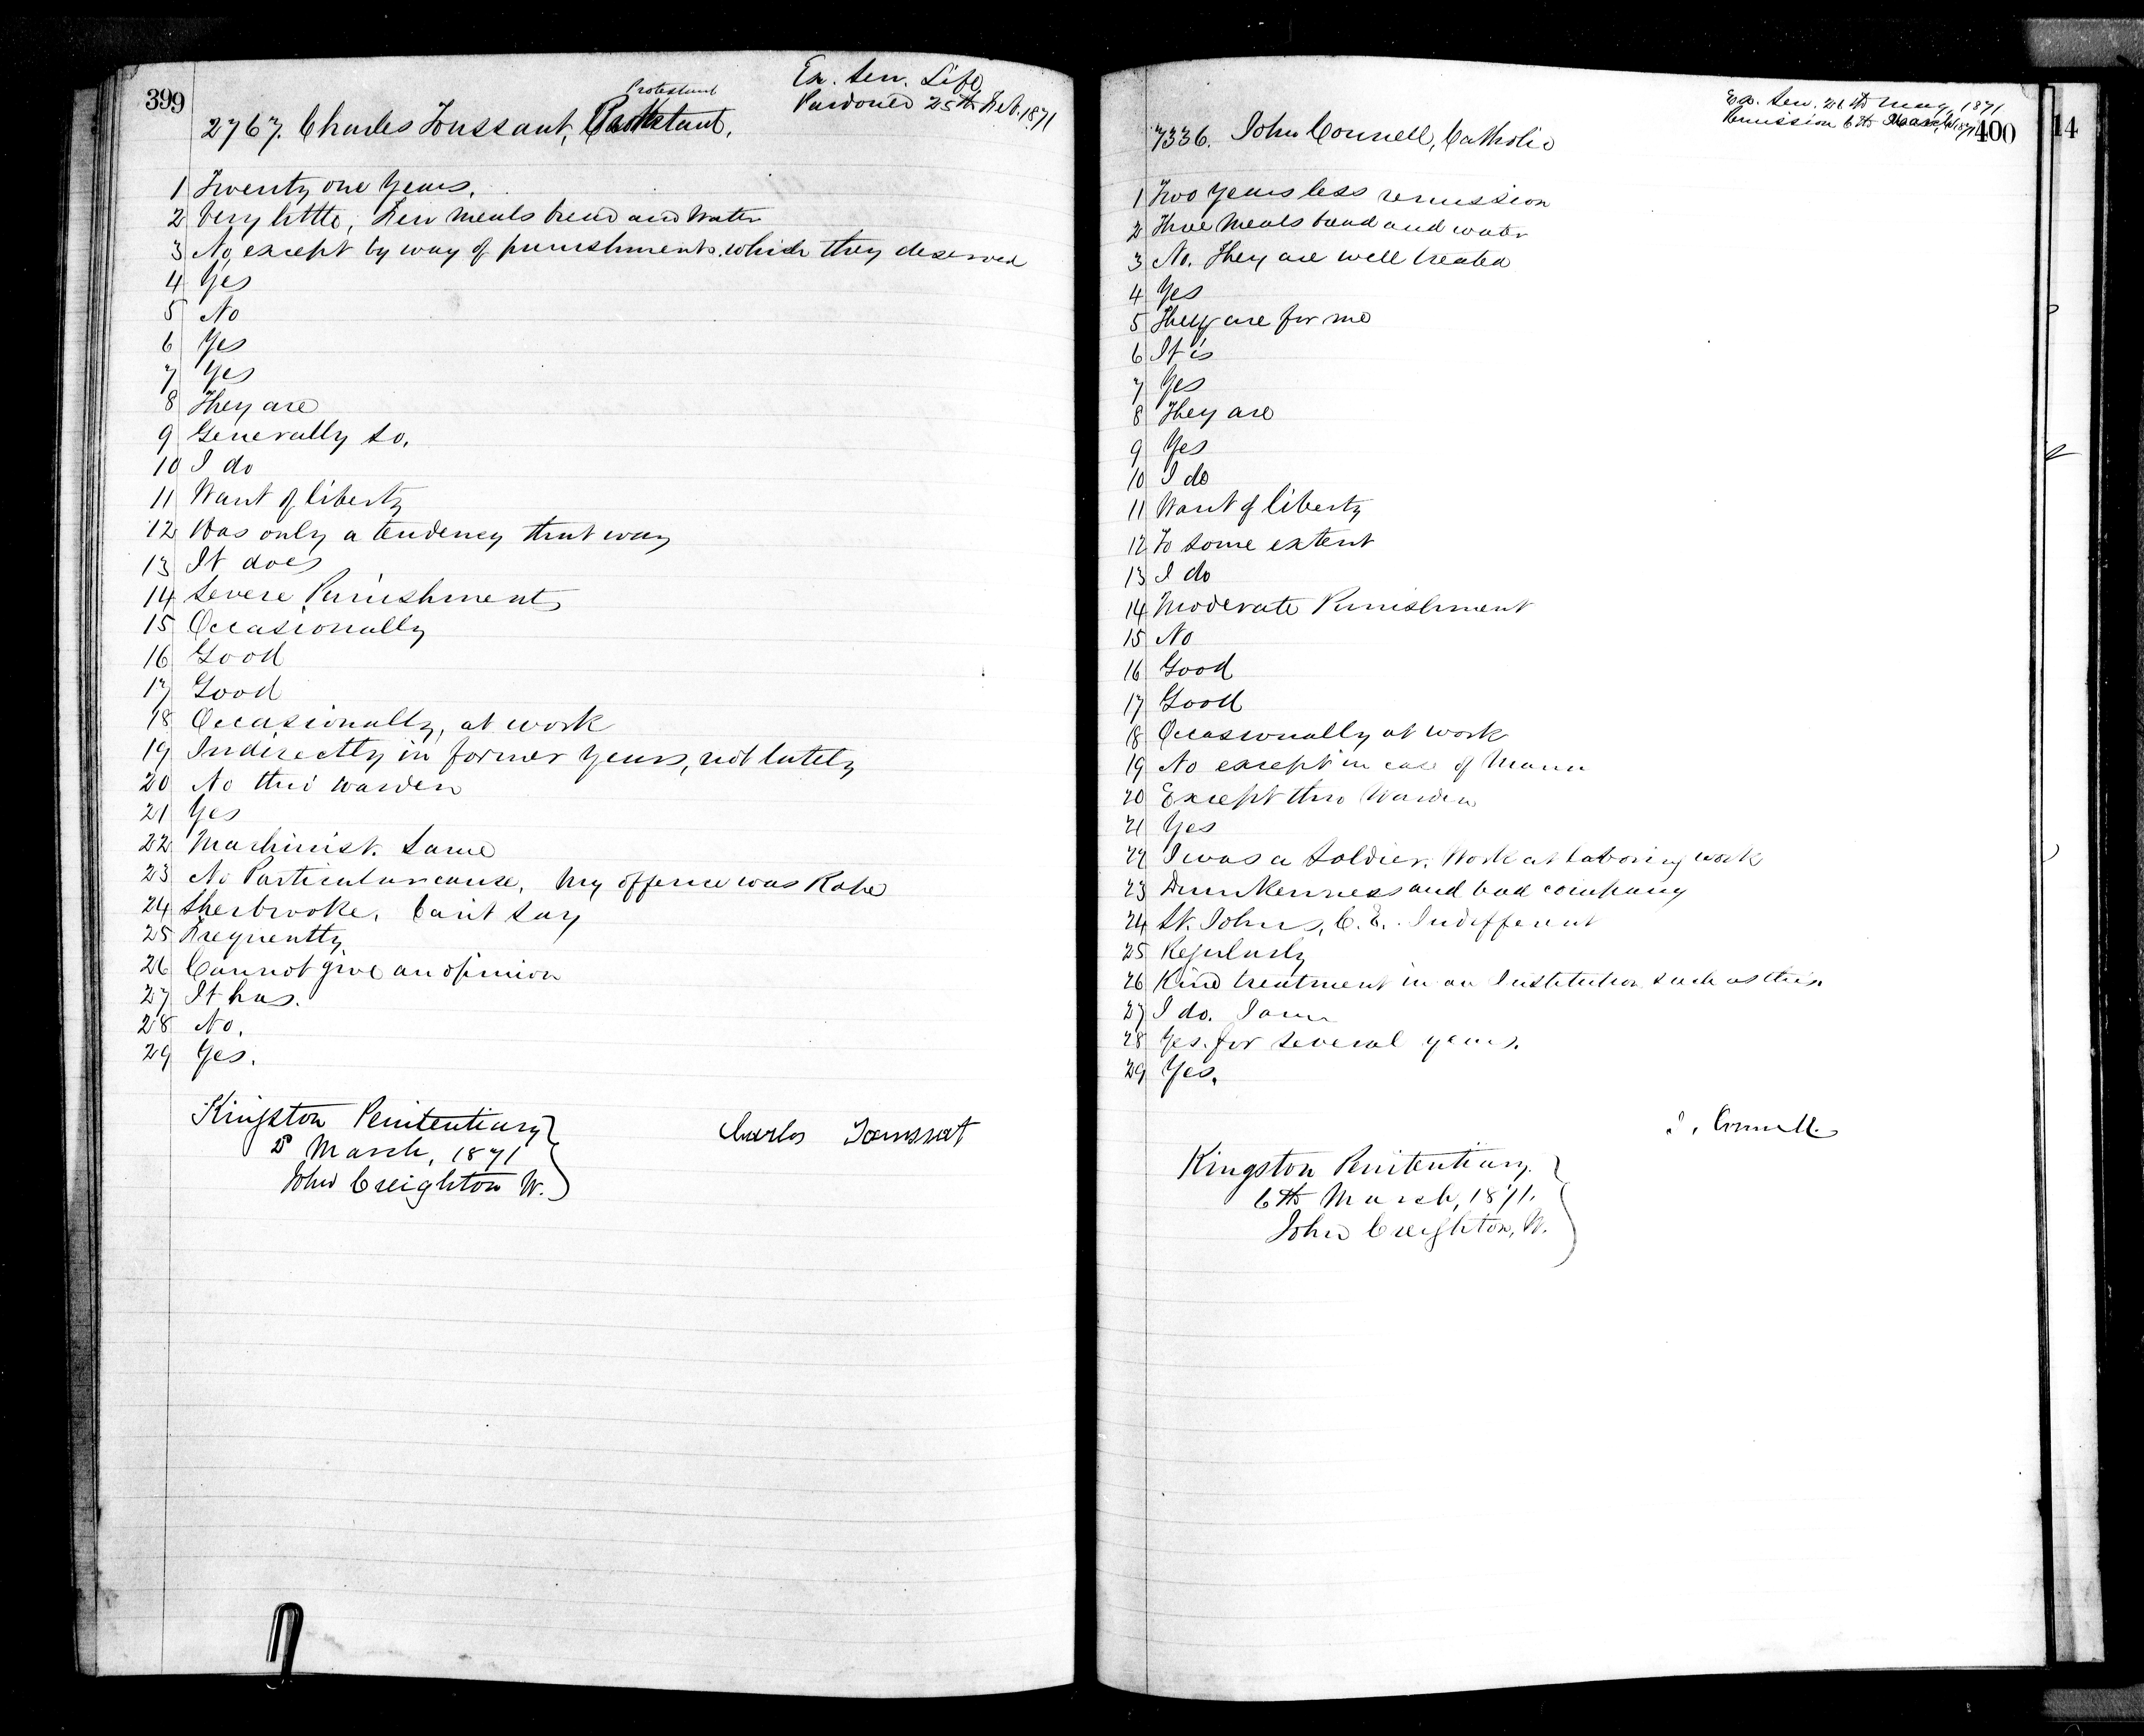 399
Ex. Sen. Life
Pardoned 25th Feb. 1871
Protestant
2767. Charles Toussant,
1 Twenty one years.
2 Very little, Few meals bread and water
3 No, except by way of punishments which they deserved
4 Yes
5 No
6 Yes
7 Yes
8 They are
9 Generally so.
10 I do
11 Want of liberty
12 Was only a tendency that way
13 It does
14 Severe Punishments
15 Occasionally
16 Good
17 Good
18 Occasionally, at work
19 Indirectly in former years, not lately
20 No thro' warden
21 Yes
22 Machinist. Same
23 No Particular cause. My offence was Rape
24 Sherbrooke. Can't say
25 Frequently
26 Cannot give an opinion
27 It has.
28 No.
29 Yes.
Kingston Penitentiary
March, 1871
John Creighton W.
Carlos Toussat
Ex. Sen. May, 1871
Remission 6th March, 1871
400
14
7336. John Connell, Catholic
1 Two years less remission
2 Three meals bread and water
3 No. They are well treated
4 Yes
5 They are for me
6 It is
7 Yes
8 They are
9 Yes
10 I do
11 Want of liberty
12 To some extent
13 I do
14 Moderate Punishment
15 No
16 Good
17 Good
18 Occasionally at work
19 No except in case of Mann
20 Except thro Warden
21 Yes
22 I was a Soldier. Work at laboring work
23 Drunkenness and bad company
24 St. Johns, C. E. Indifferent
25 Regularly
26 Kind treatment in an Institution such as this.
27 I do. I am
28 Yes. for several years.
29 Yes.
J. Connell.
Kingston Penitentiary.
6th March, 1871.
John Creighton, W.